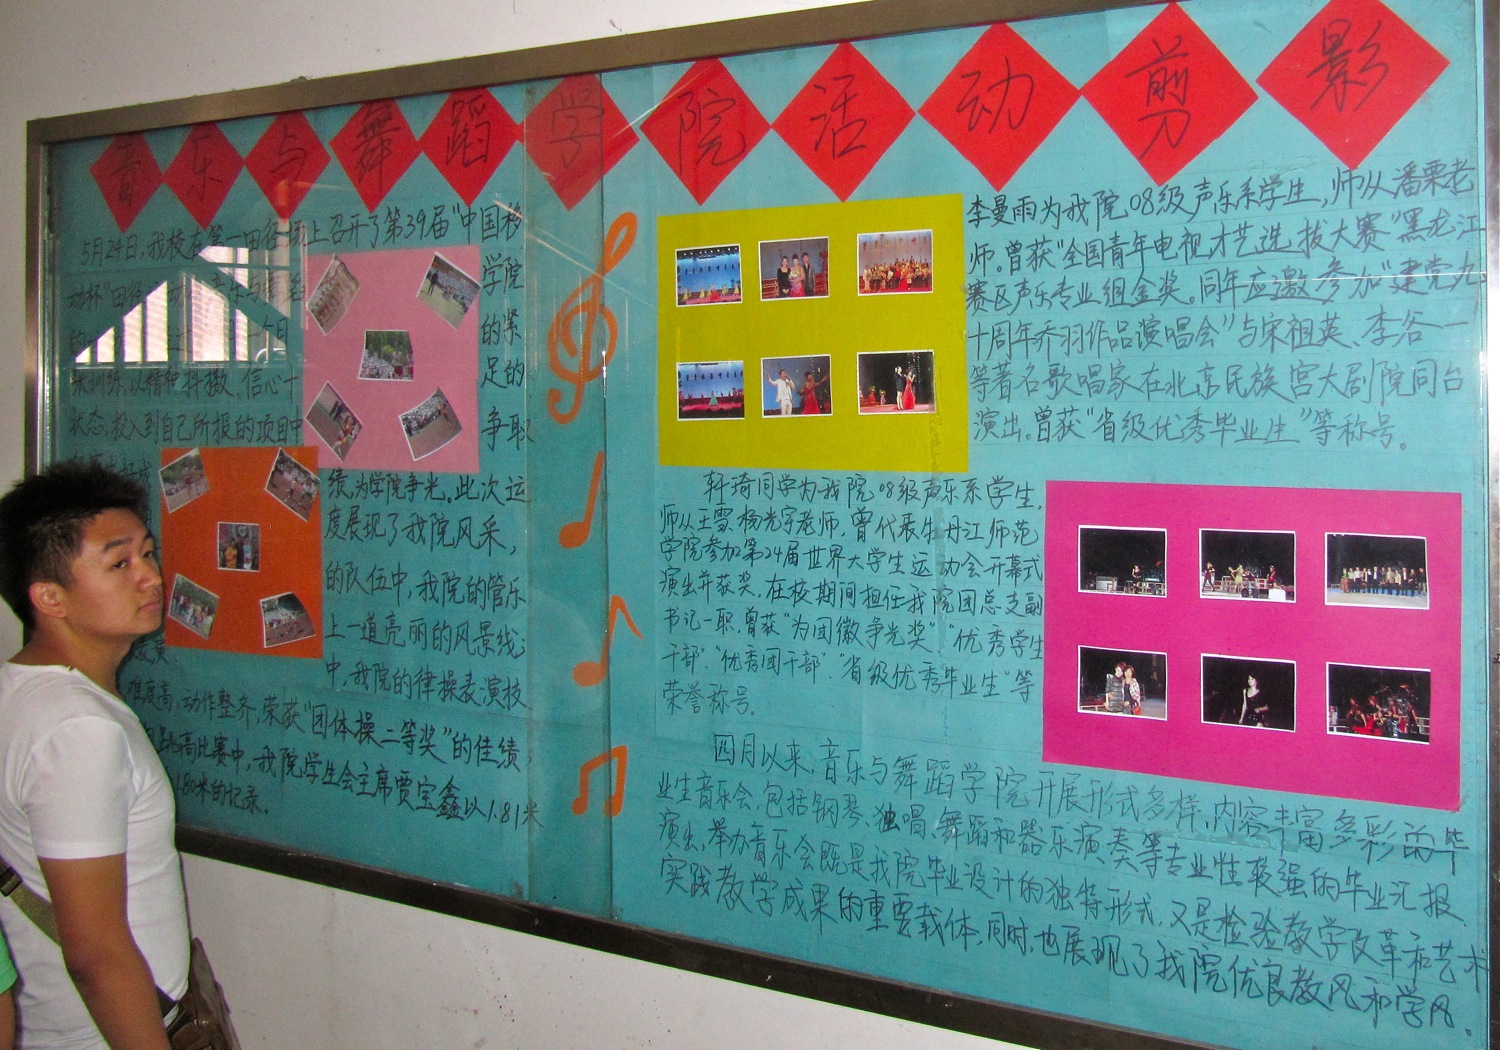 音乐与舞蹈学院活动剪影
5月24日,我校在第一田径场上召开了第39届"中国移
动杯"田径 动 音乐与 学院
的 月 的紧
训练,以精神抖擞、信心十 足的
状态,投入到自己所报的项目中 争取
绩,为学院争光。此次运
度展现了我院风采,
的队伍中,我院的管乐
上一道亮丽的风景线;
中,我院的律操表演技
难度高、动作整齐,荣获"团体操二等奖"的佳绩,
高比赛中,我院学生会主席贾宝鑫以1.81米
1.80米的记录。
李曼雨为我院08级声乐系学生,师从潘栗老
师。曾获"全国青年电视才艺选拔大赛"黑龙江
赛区声乐专业组金奖。同年应邀参加"建党九
十周年乔羽作品演唱会"与宋祖英、李谷一
等著名歌唱家在北京民族宫大剧院同台
演出。曾获"省级优秀毕业生"等称号。
轩琦同学为我院08级声乐系学生,
师从王雪、杨光宇老师,曾代表牡丹江师范
学院参加第24届世界大学生运动会开幕式
演出并获奖,在校期间担任我院团总支副
书记一职,曾获"为团徽争光奖"、"优秀学生
干部"、"优秀团干部"、"省级优秀毕业生"等
荣誉称号。
四月以来,音乐与舞蹈学院开展形式多样,内容丰富多彩的毕
业生音乐会,包括钢琴、独唱、舞蹈和器乐演奏等专业性较强的毕业汇报
演出,举办音乐会既是我院毕业设计的独特形式,又是检验教学改革和艺术
实践教学成果的重要载体,同时,也展现了我院优良教风和学风。